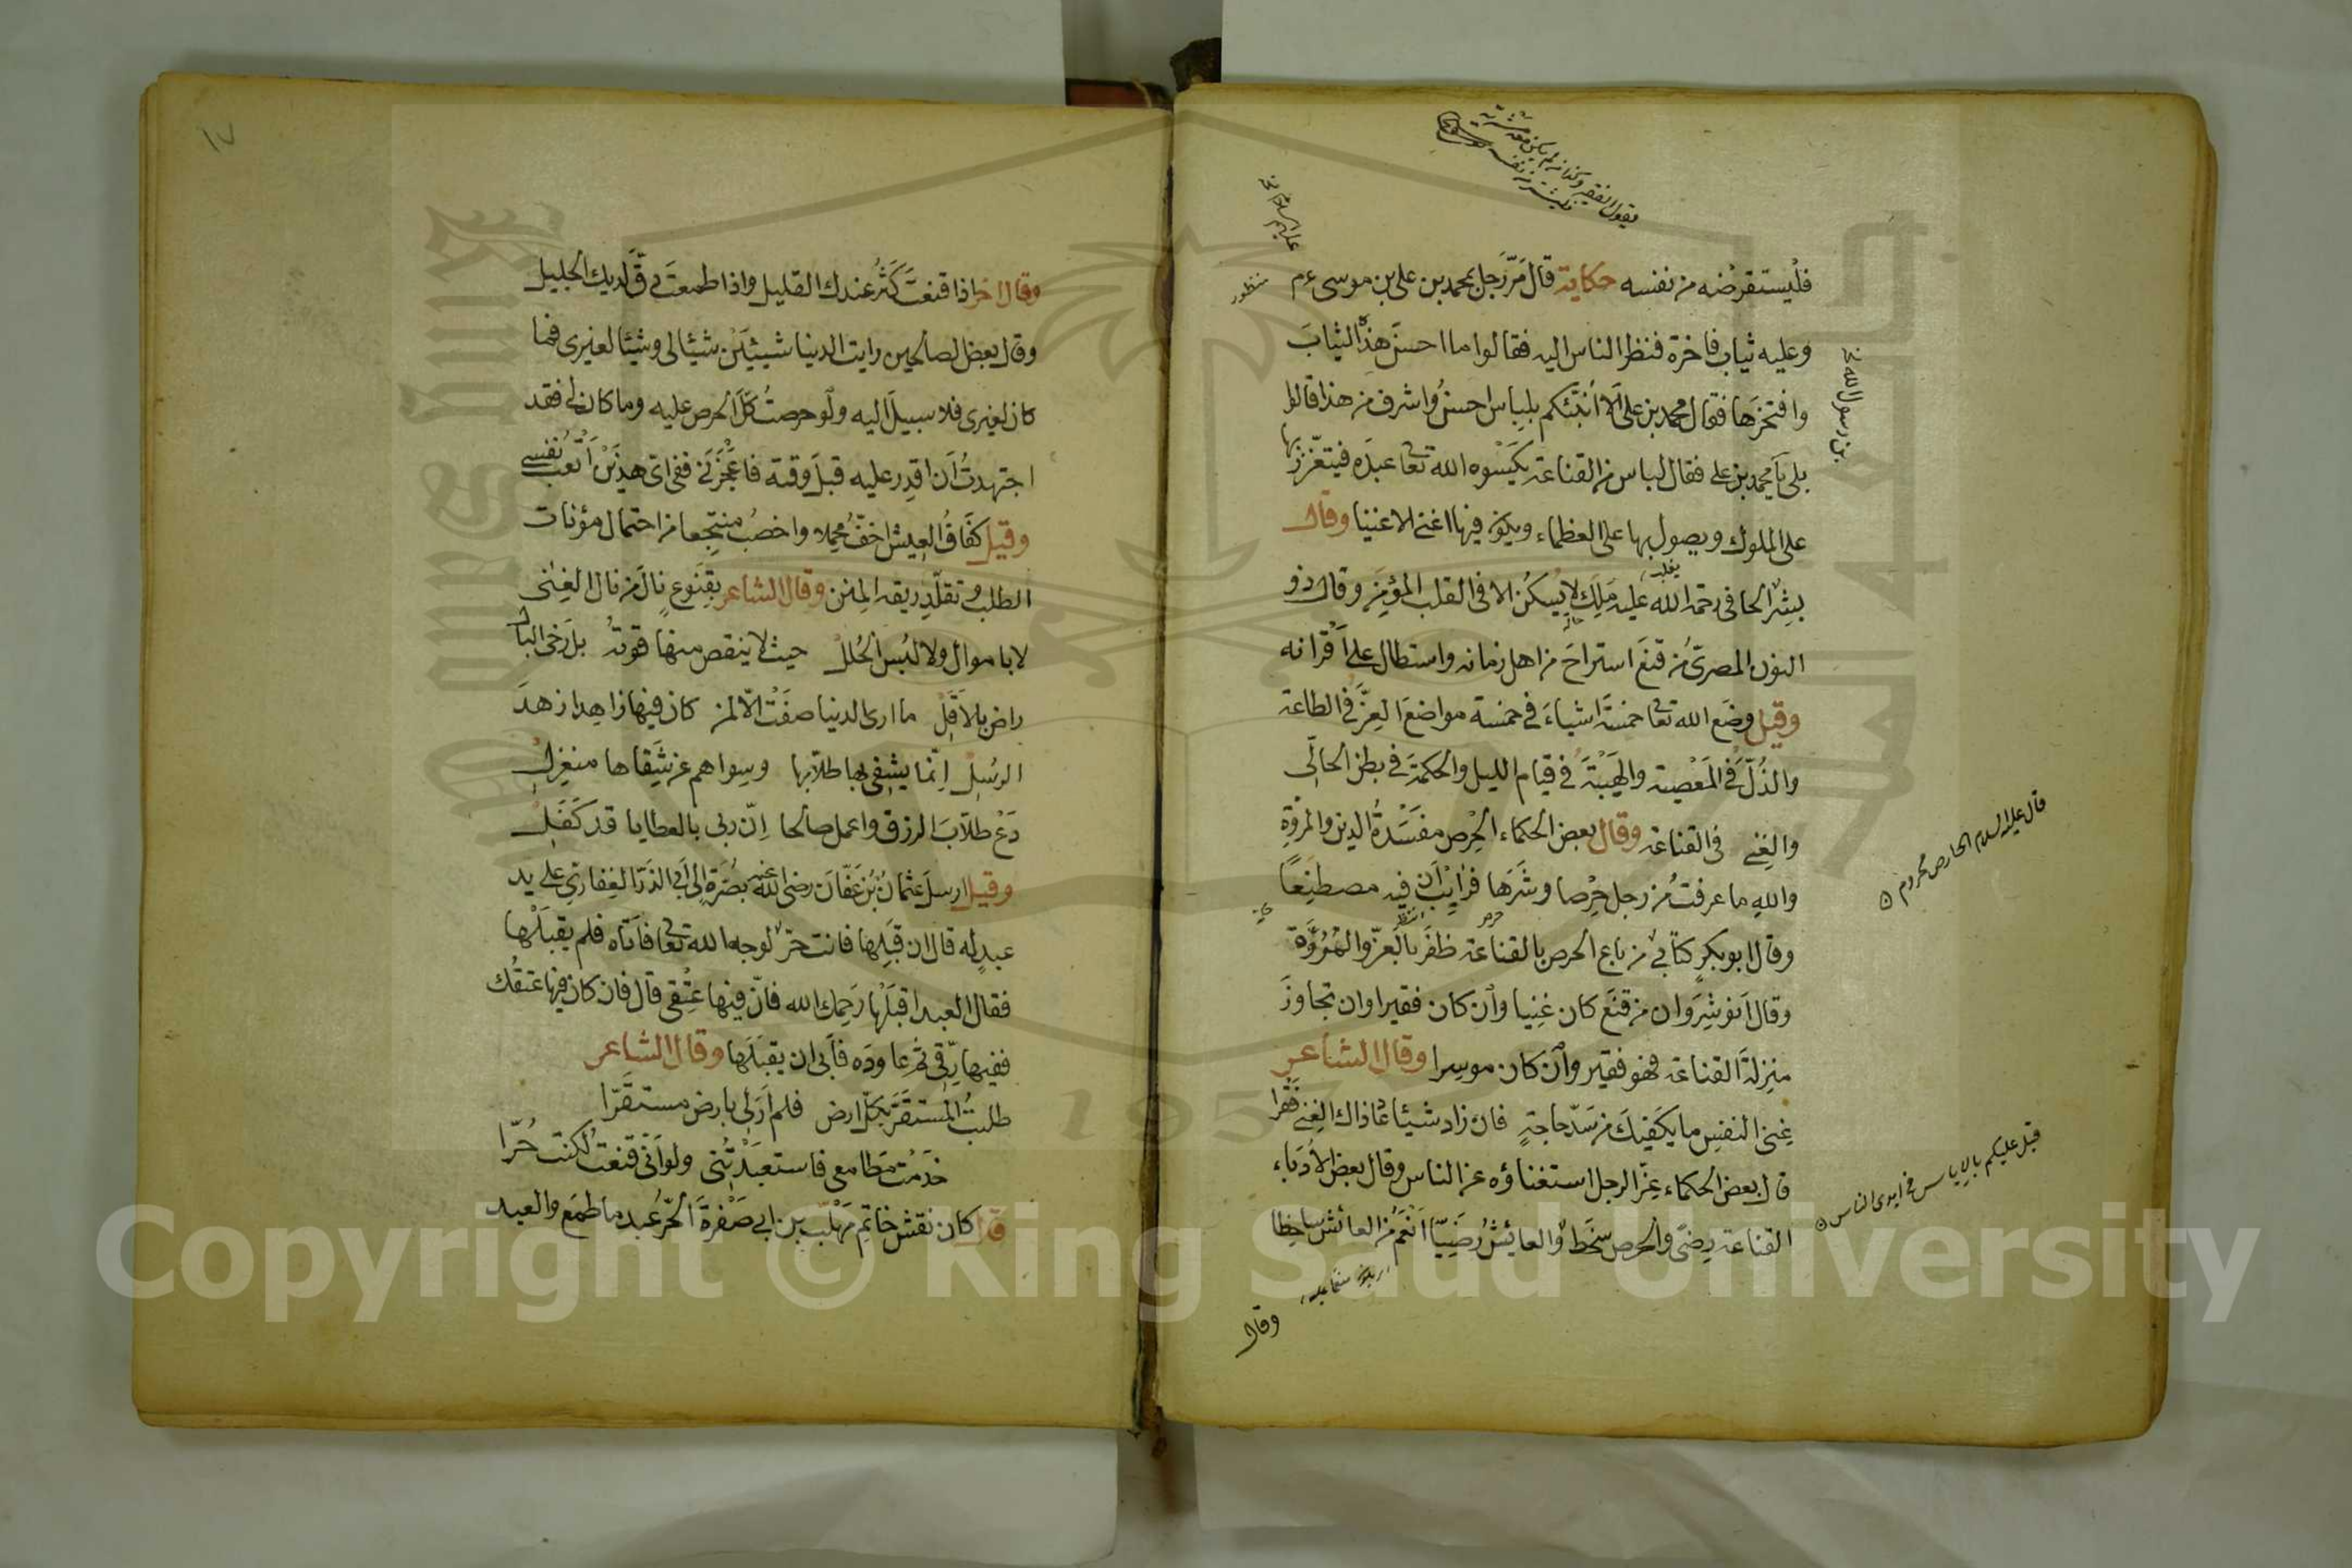 فلْيستقرضْه من نفسه حكاية قال مَرّ رَجل بمحمد بن على بن موسى ءم
وعليه ثياب فاخرة فنظر الناس اليه فقالوا ما احسنَ هذه الثيابَ
وافتخرَها فقال محمد بن على اَلا اُنبّئكم بلباس احسنُ واشرف من هذا قالوا
بلى يا محمد بن على فقال لباس من القناعة يَكسُوه الله تعا عبدَه فيتعّزز بها
على الملوك ويصول بها على العظماء ويكون فيها اغنى الاغنيا وقال
بِشْر الحافى رحمة الله عليه مَلِك لا يَسكُن الا فى القلب المؤمِن وقال ذو
النون المصرىّ من قنعَ استراحَ من اهل زمانه واستطال على اَقْرانه
وقيل وضَع الله تعا خمسَة اشياءَ فى خمسة مواضعَ العِزَّ فى الطاعة
والذُلَّ فى المَعْصية والهَيْبَةَ فى قيام الليل والحكمةَ فى بطن الخالى
والغِنى فى القناعة وقال بعض الحكماء الحِرْص مفسَدةُ الدين والمروّة
والله ما عرفت من رجل حِرْصا وشَرَها فرايت اَن فيه مصطنَعاً
وقال ابو بكر كتانى من باع الحرص بالقناعة ظفَر بالعزّ والمُروّة
وقال اَنوشِروان من قنَع كان غنيا وان كان فقيرا وان تجاوزَ
منزلةَ القناعة فهو فقير وان كان موسِرا وقال الشاعر
غِنى النفسِ ما يكفيك من سَدّ حاجةٍ فان زاد شيئا عاد ذاك الغنى فَقْرا
قال بعض الحكماء عِزّ الرجل استغناؤه عن الناس وقال بعض الاُدَباء
القناعة رِضىً والحرص سخَط والعائِشُ رَضِيّا اَنْعَم من العائش ساخطا
وقال
بن رسول الله
قال عليه السلام الحارص محروم
قيل عليكم بالاياس مما فى ايدى الناس
١٧
وقال اخر اذا قنعتَ كَثُر عندك القليل واذا طمعتَ دقَّ لديك الجليل
وقال بعض لصالحين رايت الدينا شيئيَنْ شيئا لى وشيئا لغيرى فما
كان لغيرى فلا سبيلَ اليه ولو حرصتُ كلَّ الحرص عليه وما كان لى فقد
اجتهدتُ اَن اقدِر عليه قبلَ وقته فاعجَزَنى ففى اىّ هذين اَتعب نفسى
وقيل كفَافُ العيش اخفّ مُحِملا واخصُب منتجعا من احتمال مؤنات
الطلب وتقلّد ربقة المِنَن وقال الشاعر بقنوعٍ نالَ من نال الغنى
لا باموال ولا لبُس الحُلل حيث لا ينقص منها قوتهُ بل رَخى البال
راض بالاَقَلْ ما ارى الدنيا صفَتْ الّا لمن كان فيها زاهدا زهدَ
الرسُل اِنّما يشقى بها طلّابها وسِواهم عن شِقاها منعزل
دَعْ طلابَ الرزق واعمل صالحا اِنّ ربى بالعطايا قد كَفَل
وقيل ارسلَ عثمانُ بن عَفّانَ رضى الله عنه بصُرّةٍ الى ابى الذَرّ الغفارى على يد
عبدٍ له قال ان قبَلِها فانت حرّ لوجه الله تعا فاَتاه فلم يقبَلْها
فقال العبد اقبَلْها رَحِمك الله فانّ فيها عِتْقى قال فان كان فيها عتقُك
ففيها رِقّى ثم عاودَه فاَبى ان يقبَلَها وقال الشاعر
طلبتُ المستقَرَّ بكلّ ارض فلم اَرَ لى بارض مستقَرّا
خَدَمْت مَطامعى فاستعبَدَتْنى ولو اَنّى قنعتُ لكنت حُرّا
قيل كان نقش خاتم مَهْلّب بن ابى صَفْرةَ الحُرّ عبد ما طمَع والعبد
Copyright © King Saud University
King Saud University
1957